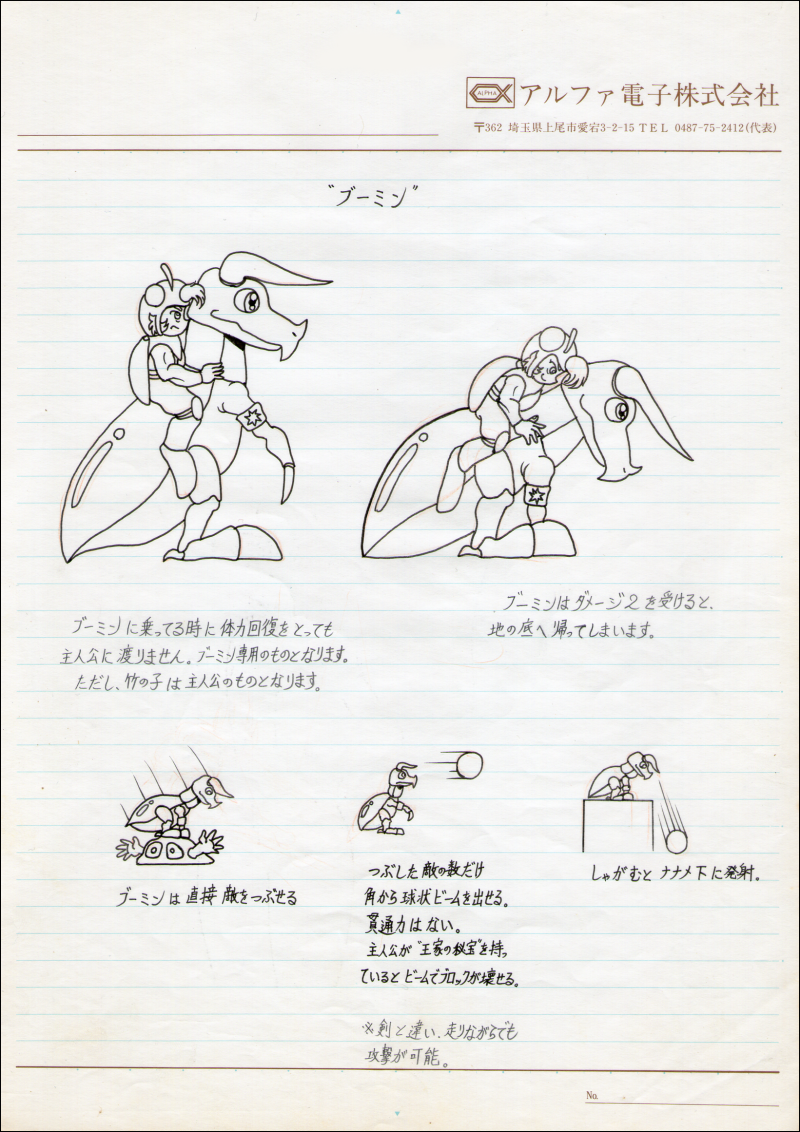 ALPHA
アルファ電子株式会社
〒362 埼玉県上尾市愛宕3-2-15 TEL 0487-75-2412(代表)
"ブーミン"
ブーミンに乗ってる時に体力回復をとっても
主人公に渡りません。ブーミン専用のものとなります。
ただし、竹の子は主人公のものとなります。
ブーミンはダメージ2を受けると、
地の底へ帰ってしまいます。
ブーミンは直接敵をつぶせる
つぶした敵の数だけ
角から球状ビームを出せる。
貫通力はない。
主人公が"王家の秘宝"を持っ
ているとビームでブロックが壊せる。
※剣と違い、走りながらでも
攻撃が可能。
しゃがむとナナメ下に発射。
No.